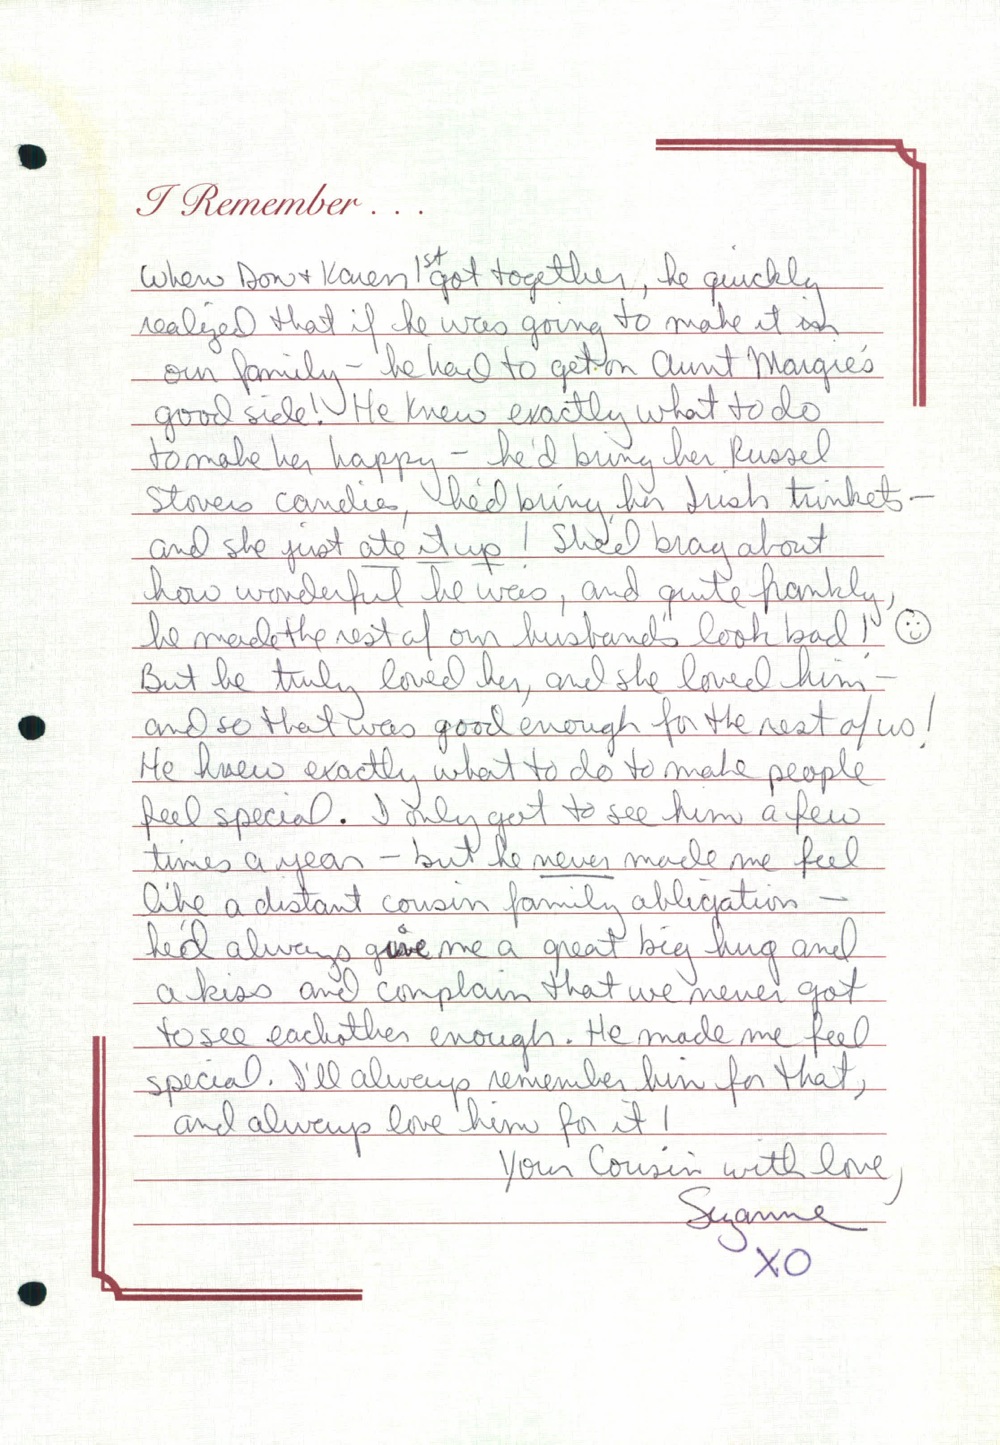 I Remember . . .
When Don + Karen 1st got together, he quickly
realized that if he was going to make it in
our family - he had to get on Aunt Margie's
good side! He knew exactly what to do
to make her happy - he'd bring her Russel
Stovers candies, he'd bring her Irish trinkets -
and she just ate it up! She'd brag about
how wonderful he was, and quite frankly,
he made the rest of our husbands look bad! ☺
But he truly loved her, and she loved him -
and so that was good enough for the rest of us!
He knew exactly what to do to make people
feel special. I only got to see him a few
times a year - but he never made me feel
like a distant cousin family obligation -
he'd always give me a great big hug and
a kiss and complain that we never got
to see eachother enough. He made me feel
special. I'll always remember him for that,
and always love him for it!
Your Cousin with love,
Suzanne
XO